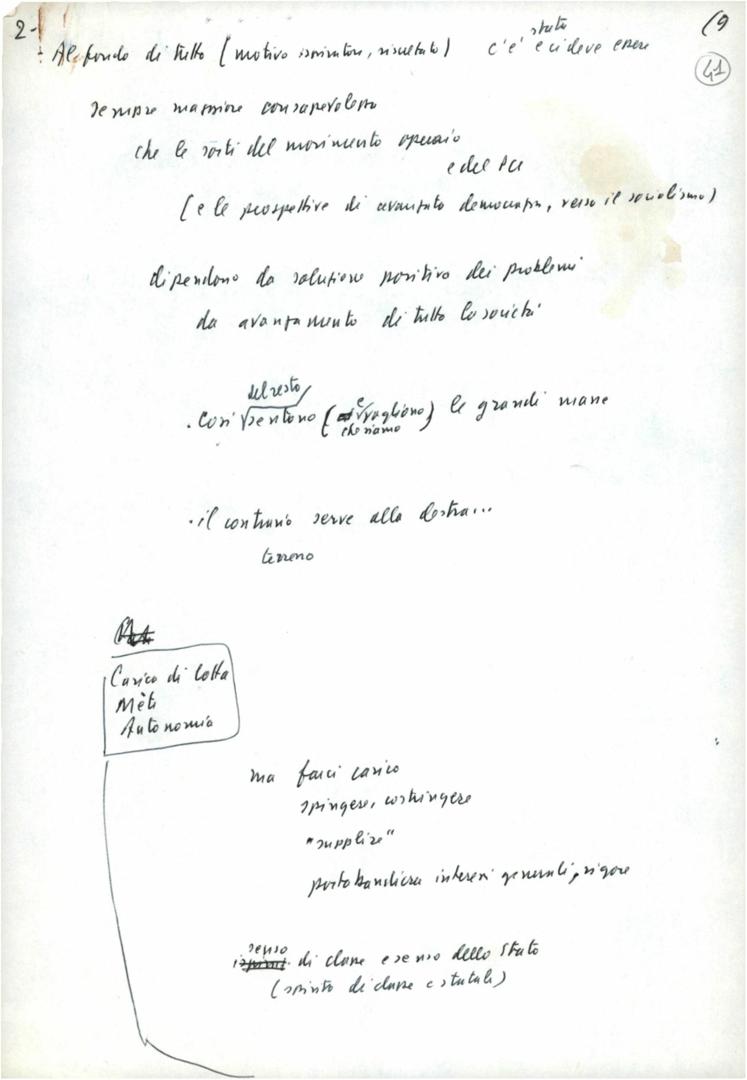 2-
(9
41
- Al fondo di tutto (motivo ispiratore, risultato) c'è stato e ci deve essere
sempre maggiore consapevolezza
che le sorti del movimento operaio
e del PCI
(e le prospettive di avanzata democratica, verso il socialismo)
dipendono da soluzione positiva dei problemi
da avanzamento di tutta la società
. Così del resto sentono (e vogliono che siamo) le grandi masse
. il contrario serve alla destra...
terreno
Carica di lotta
Mèta
Autonomia
ma farci carico
spingere, costringere
"supplire"
portabandiera interessi generali, rigore
senso di classe e senso dello Stato
(spirito di classe e statale)